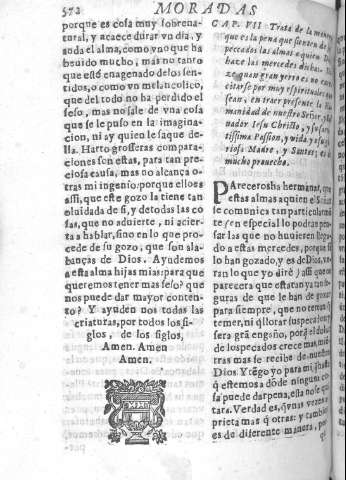 572 MORADAS
porque es cosa muy sobrena-
tural, y acaece durar vn dia, y
anda el alma, como vno que ha
beuido mucho, mas no tanto
que esté enagenado de los sen-
tidos, o como vn melancolico,
que del todo no ha perdido el
seso, mas no sale de vna cosa
que se le puso en la imagina-
cion, ni ay quien le saque de-
lla. Harto grosseras compara-
ciones son estas, para tan pre-
ciosa causa, mas no alcança o-
tras mi ingenio: porque ello es
assi, que este gozo la tiene tan
oluidada de si, y de todas las co
sas, que no aduierte, ni acier-
ta a hablar, sino en lo que pro-
cede de su gozo, que son ala-
banças de Dios. Ayudemos
a esta alma hijas mias: para que
queremos tener mas seso? que
nos puede dar mayor conten-
to? Y ayuden nos todas las
criaturas, por todos los si-
glos, de los siglos,
Amen. Amen
Amen.
CAP. VII Trata de la manera
que es la pena que sienten de sus
peccados las almas a quien Dios
haze las mercedes dichas. Di-
ze quan gran yerro es no exer-
citarse por muy espirituales que
sean, en traer presente la Hu-
manidad de nuestro Señor, y Sal
uador Iesu Christo, y su sacra-
tissima Passion, y vida, y su glo-
riosa Madre, y Santos; es de
mucho prouecho.
PAreceroshà hermanas, que
estas almas a quien el Señor
se comunica tan particularmen
te (en especial lo podran pen-
sar las que no huuieren llega-
do a estas mercedes, porque si
lo han gozado, y es de Dios, ve-
ran lo que yo diré) assi que os
parecera que estaran ya tan se-
guras de que le han de gozar
para siempre, que no tendran que
temer, ni q̃ llorar sus peccados, y
sera grã engaño, porq̃ el dolor
de los pecados crece mas, mien
tras mas se recibe de nuestro
Dios. Y tẽgo yo para mi, q̃ hasta
q̃ estemos adõde ninguna co-
sa puede dar pena, esta no se qui
tara. Verdad es, q̃ vnas vezes a-
prieta mas q̃ otras: y tambien
es de diferente manera, por